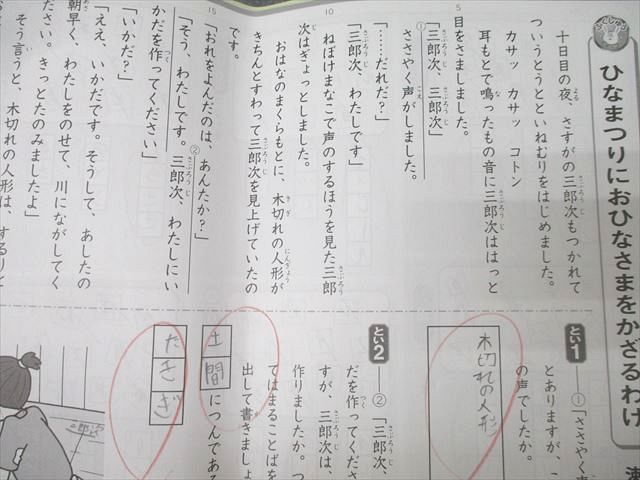 ひなまつりにおひなさまをかざるわけ
十日目の夜、さすがの三郎次もつかれて
ついうとうとといねむりをはじめました。
カサッ カサッ コトン
耳もとで鳴ったもの音に三郎次ははっと
目をさましました。
「三郎次、三郎次」
①ささやく声がしました。
「……だれだ?」
「三郎次、わたしです」
ねぼけまなこで声のするほうを見た三郎
次はぎょっとしました。
おはなのまくらもとに、木切れの人形が
きちんとすわって三郎次を見上げていたの
です。
「おれをよんだのは、あんたか?」
「そう、わたしです。②三郎次、わたしにい
かだを作ってください」
「いかだ?」
「ええ、いかだです。そうして、あしたの
朝早く、わたしをのせて、川にながしてく
ださい。きっとたのみましたよ」
そう言うと、木切れの人形は、するりと
5
10
15
とい1
①「ささやく声
とありますが、
の声でしたか。
木切れの人形
とい2
②「三郎次、
だを作ってくださ
すが、三郎次は、
作りましたか。
てはまることばを
出して書きましょ
土間
につんである
たきぎ